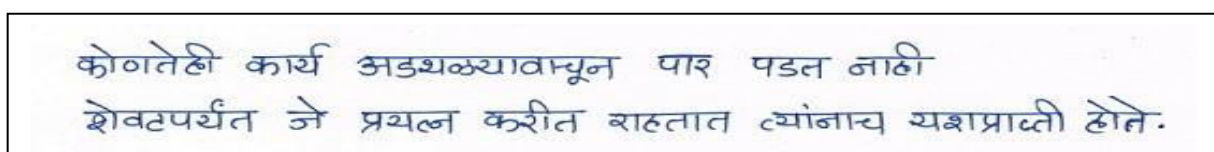 कोणतेही कार्य अडथळ्यावाचून पार पडत नाही
शेवटपर्यंत जे प्रयत्न करीत राहतात त्यांनाच यशप्राप्ती होते.